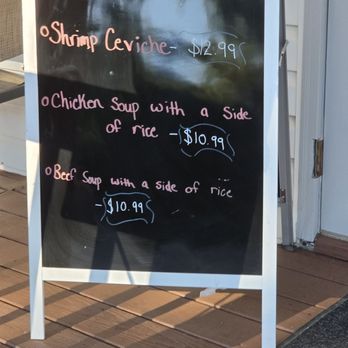 o Shrimp Ceviche - $12.99
o Chicken Soup with a side
of rice - $10.99
o Beef Soup with a side of rice
- $10.99